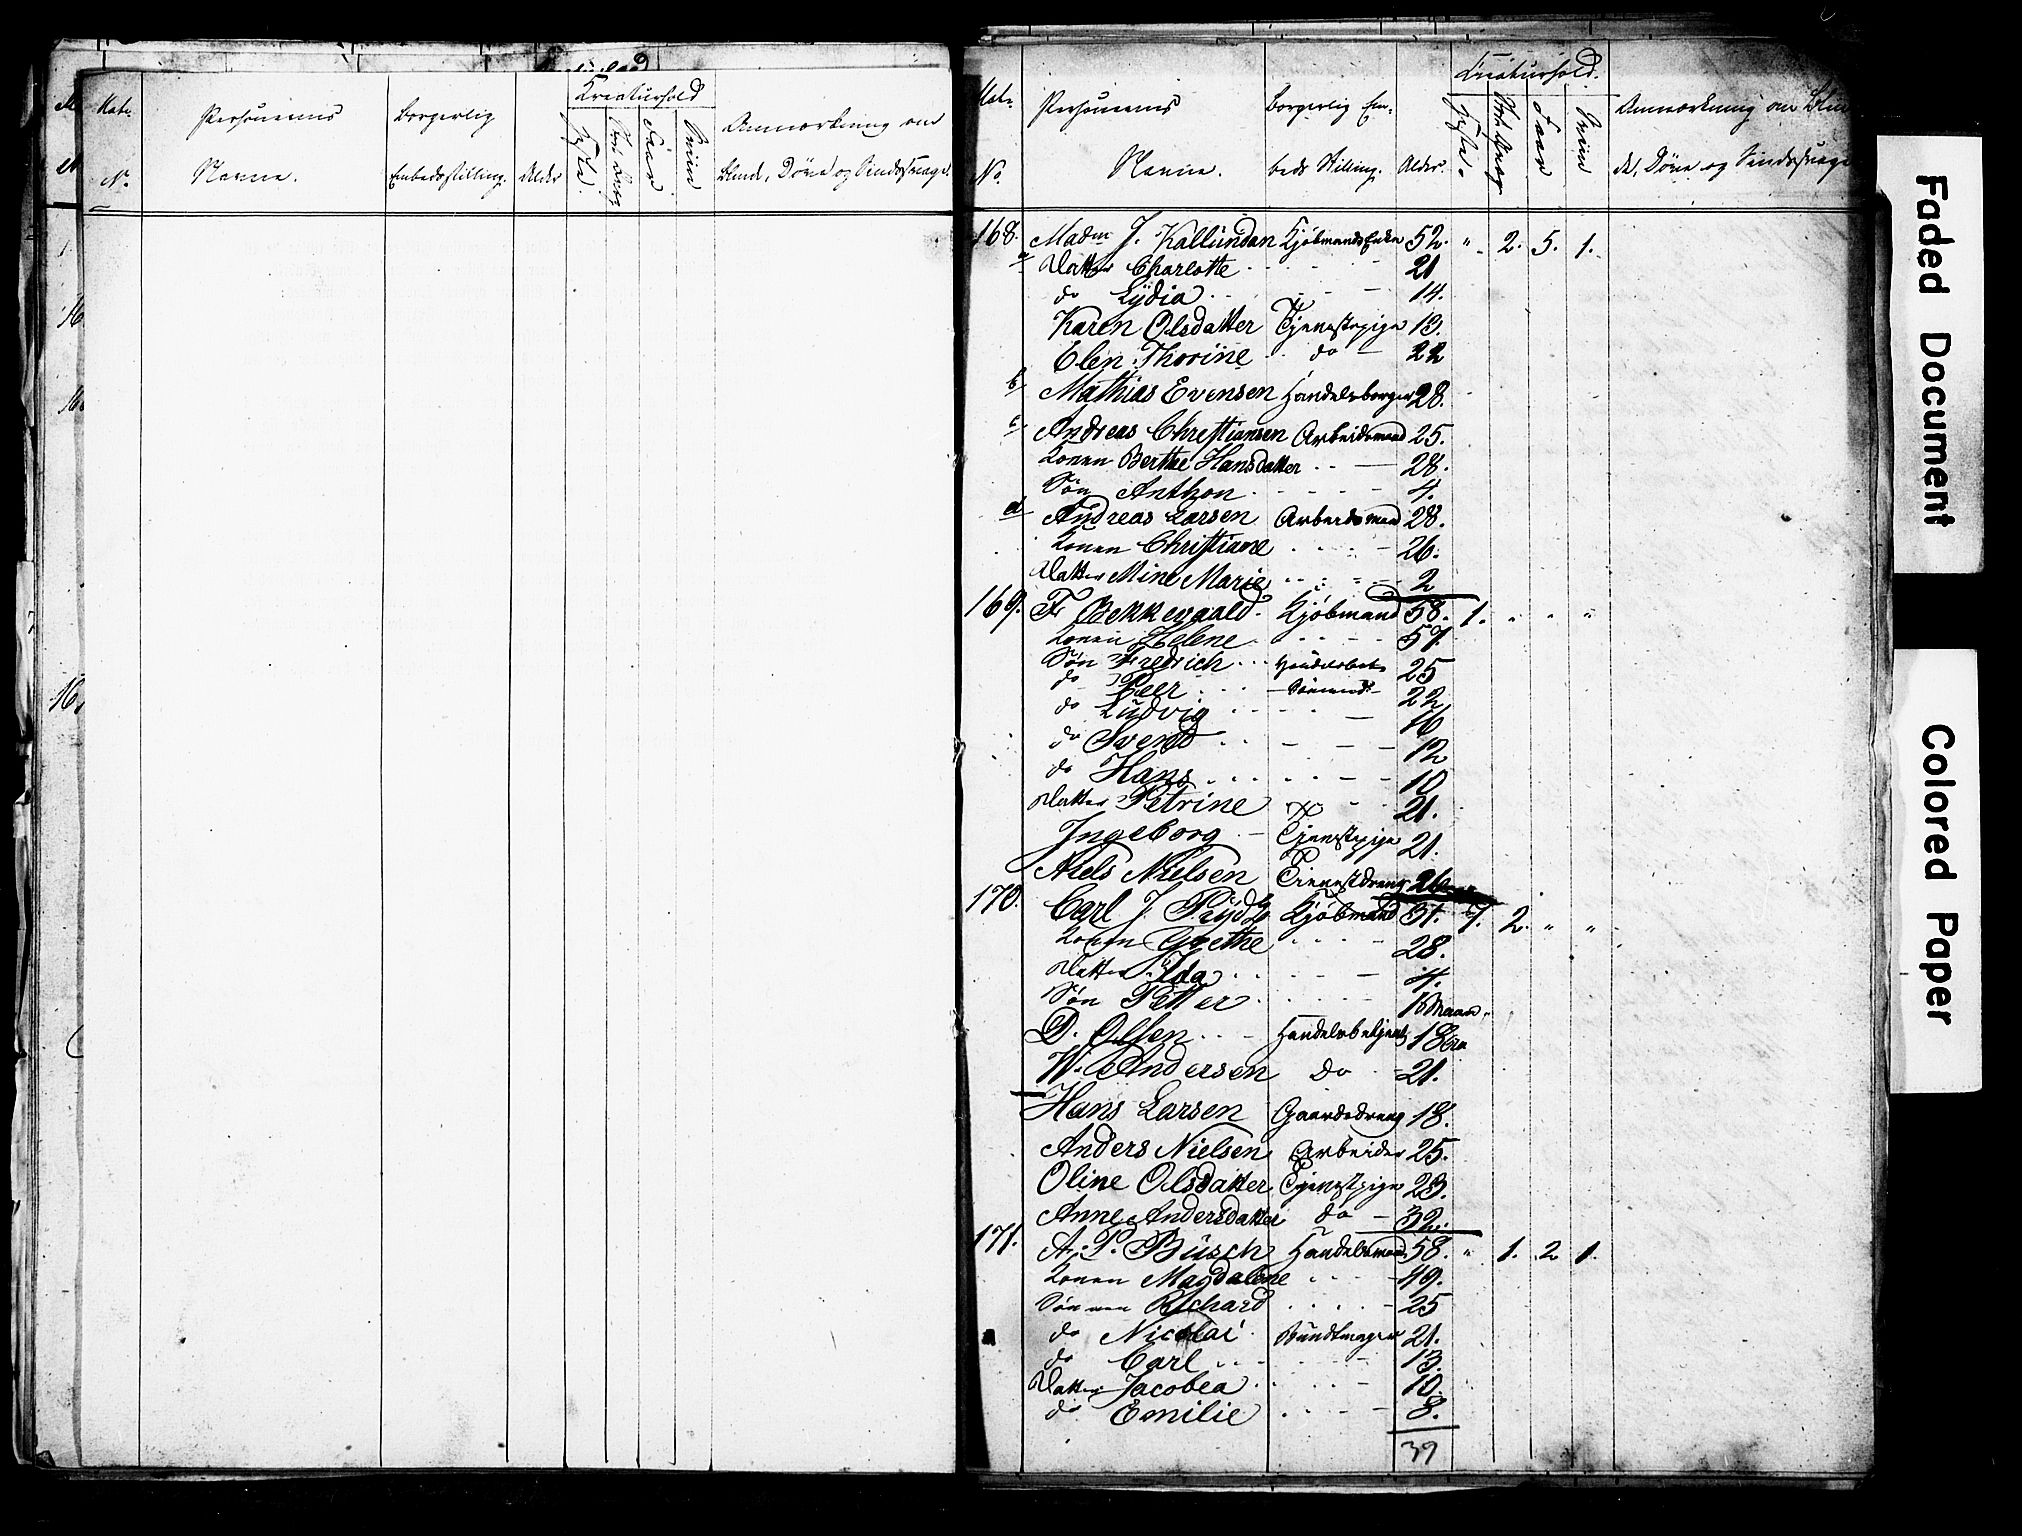 Matr. Personernes Borgerlig Kreaturhold Anmærkning om
No. Navne. Embedsstilling. Alder Heste. Faar Sviin Blinde, Døve og Sindssvage.
Matr. Personernes Borgerlig Em- Kreaturhold. Anmærkning om Blin
No. Navne. beds Stilling. Alder. Heste. Faar Sviin de, Døve og Sindssvage
168. Madm J. Kallundan Kjøbmands Enke 52. " 2. 5. 1.
a Datter Charlotte 21
do Lydia 14.
Karen Olsdatter Tjenestepige 13.
Elen Thorine do 22
b Mathias Evensen Handelsborger 28.
c Andreas Christiansen Arbeidsmand 25.
Konen Berthe Hansdatter 28.
Søn Anthon 4.
d Andreas Larsen Arbeidsmand 28.
Konen Christiane 26.
Datter Mine Marie 2
169. F. Bekkevaald. Kjøbmand 58. 1. " " "
Konen Helene 57.
Søn Fredrich 25
do Peer Sømand 22
do Ludvig 16
do Svend 12
do Hans 10
Datter Petrine 21.
Ingeborg Tjenestepige 21.
Niels Nielsen Tienestdreng 26
170. Carl J. Prydz Kjøbmand 31. 2. " "
Konen Grethe 28.
Datter Ida 4.
Søn Petter Maan.
D. Olsen Handelsbetjent 18
W. Andersen Do 21.
Hans Larsen Gaardsdreng 18.
Anders Nielsen Arbeider 25.
Oline Olsdatter Tjenestpige 23.
Anne Andersdatter do 32.
171. A. P. Busch Handelsmand 58. " 1. 2 1.
Konen Magdalene 49.
Sønnen Richard 25
do Nicolai Bundtmager 21.
do Carl 13.
Datter Jacobea 10.
do Emilie 8.
39
Faded Document
Colored Paper